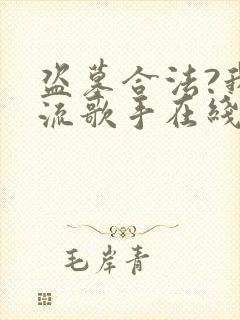 盗墓合法?我
流歌手在綫
毛岸青